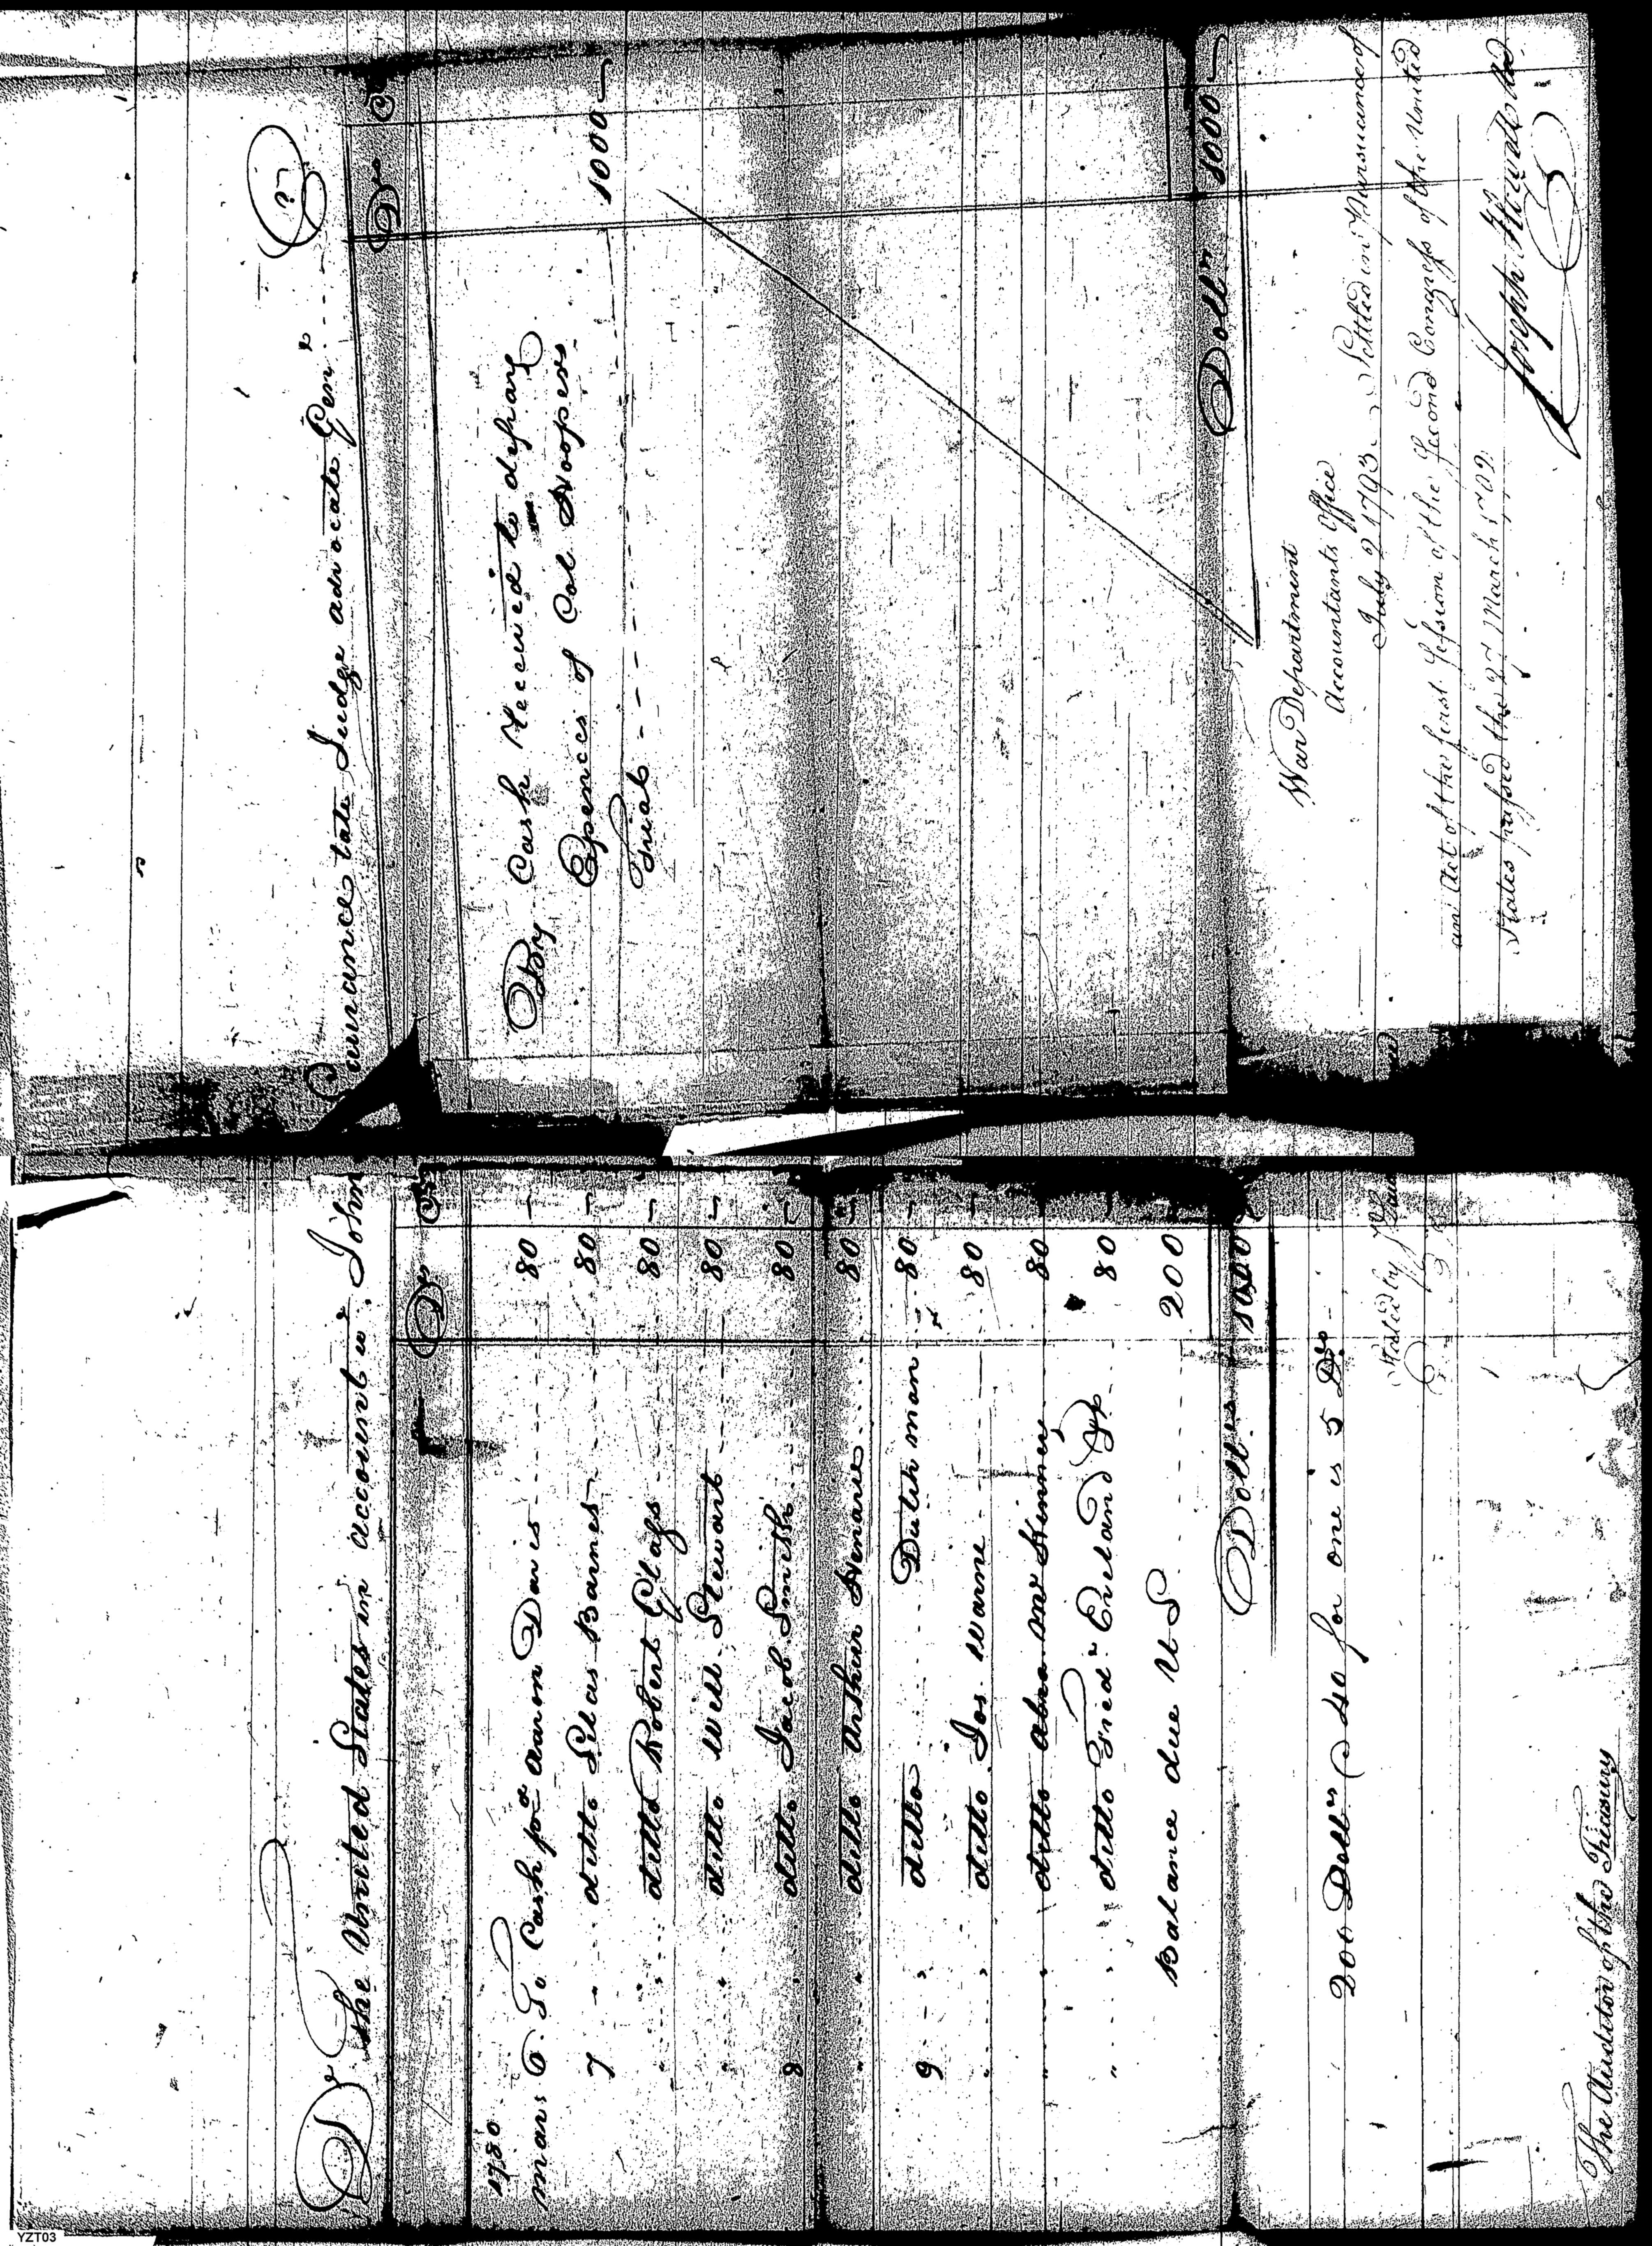 Dr The United States in account wth John
Dr Cs
1780
Mars 6 To Cash pd Aaron Davis 80
7 ditto Silas Barnes 80
" ditto Robert Glass 80
" ditto Will Stewart 80
8 ditto Jacob Smith 80
" ditto Arthur Henarie 80
9 ditto Dutch man 80
" ditto Jos. Warne 80
" ditto Abra mcKinney 80
" ditto Fredk Eveland 80
Balance due U S 200
Dollrs 1000
200 Dollrs @ 40 for one is 5 Drs
Stated by
The Auditor of the Treasury
Cr
Lawrance late Judge advocate Genl
Dr Cs
By Cash Received to defray
Expences of Col Hoopers
Trial 1000
Dollrs 1000
War Department
Accountants Office
July 2 1793. Settled in Pursuance of
an Act of the first Session of the Second Congress of the United
States passed the 27 March 1792.
Joseph Howell
YZT03